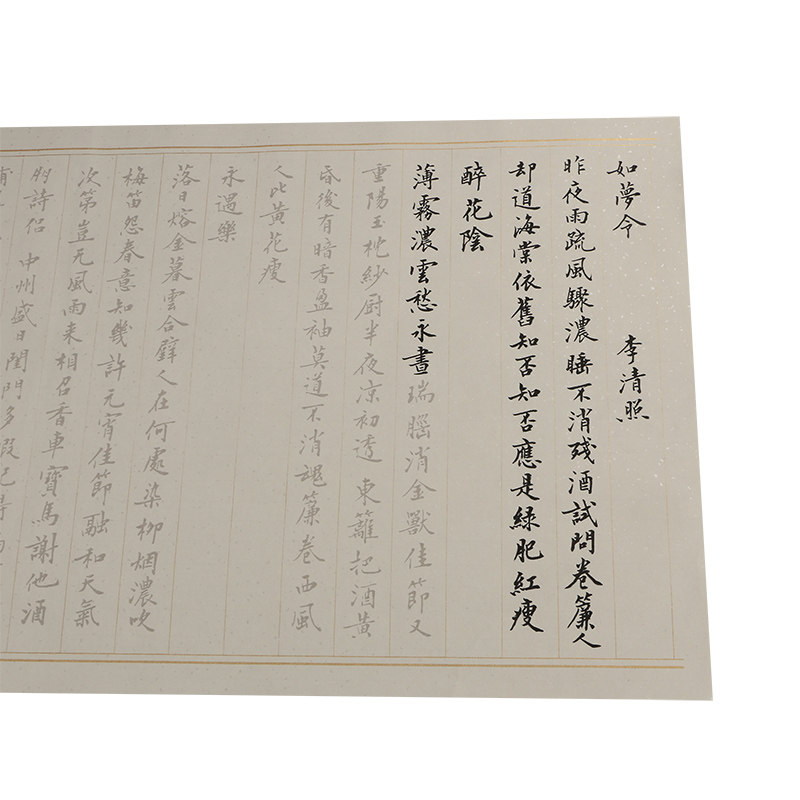 如夢令 李清照
昨夜雨疏風驟濃睡不消殘酒試問卷簾人
却道海棠依舊知否知否應是緑肥紅瘦
醉花陰
薄霧濃雲愁永晝瑞腦消金獸佳節又
重陽玉枕紗厨半夜凉初透東籬把酒黄
昏後有暗香盈袖莫道不消魂簾卷西風
人比黄花瘦
永遇樂
落日熔金暮雲合璧人在何處染柳烟濃吹
梅笛怨春意知幾許元宵佳節融和天氣
次第豈无風雨来相召香車寶馬謝他酒
朋詩侣中州盛日閨門多暇記得